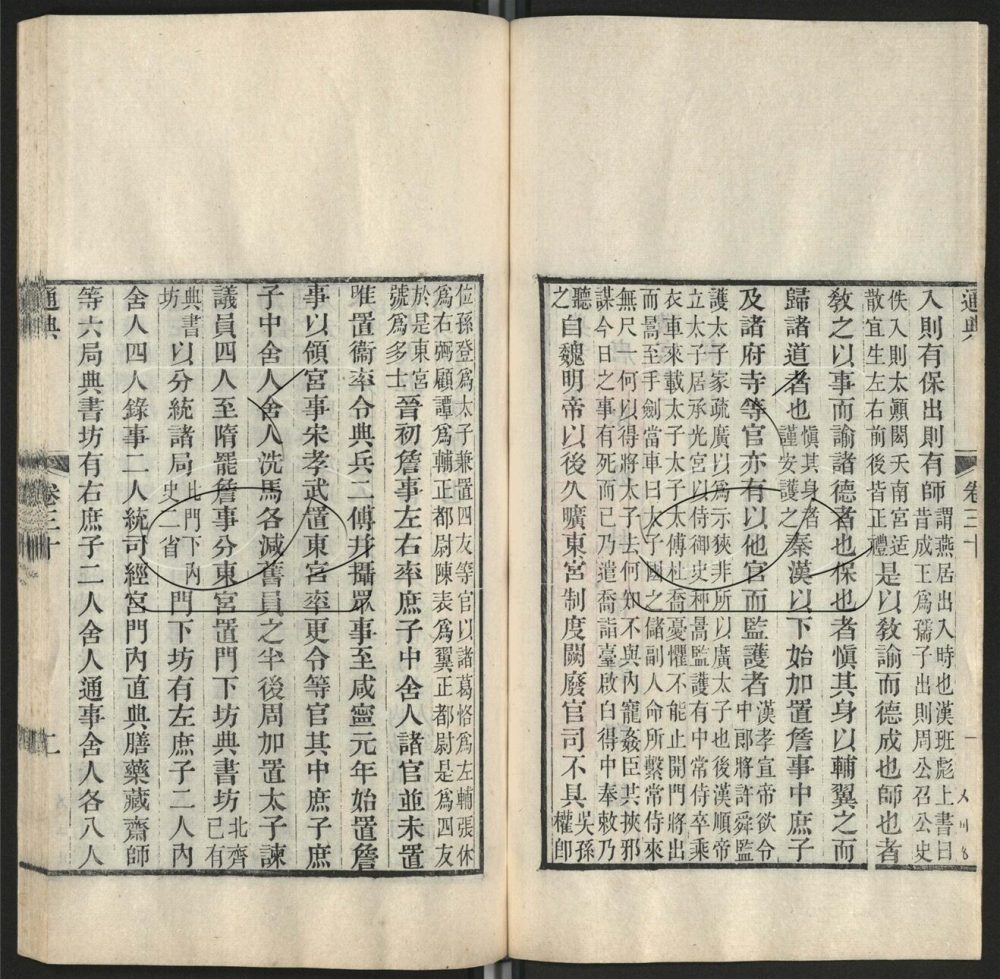 通典 卷三十
入則有保出則有師謂燕居出入時也漢班彪上書曰
昔成王爲孺子出則周公召公史
佚入則太顛閎夭南宮适
散宜生左右前後皆正禮是以敎諭而德成也師也者
敎之以事而諭諸德者也保也者愼其身以輔翼之而
歸諸道者也愼其身者
謹安護之秦漢以下始加置詹事中庶子
及諸府寺等官亦有以他官而監護者漢孝宣帝欲令
中郞將許舜監
護太子家疏廣以爲示狹非所以廣太子也後漢順帝
立太子居承光宮以侍御史种暠監護有中常侍卒乘
衣車來載太子太子太傅杜喬憂懼不能止開門將出
而暠至手劍當車曰太子國之儲副人命所繫常侍來
無尺一何以得將太子去何知不與內寵姦臣共挾邪
謀今日之事有死而已乃遣喬詣臺啟白得中奉敕乃
聽
之自魏明帝以後久曠東宮制度闕廢官司不具吳孫
權卽
位孫登爲太子兼置四友等官以諸葛恪爲左輔張休
爲右弼顧譚爲輔正都尉陳表爲翼正都尉是爲四友
於是東宮
號爲多士晉初詹事左右率庶子中舍人諸官並未置
唯置衞率令典兵二傅并攝眾事至咸寧元年始置詹
事以領宮事宋孝武置東宮率更令等官其中庶子庶
子中舍人舍人洗馬各減舊員之半後周加置太子諫
議員四人至隋罷詹事分東宮置門下坊典書坊北齊
已有
典書
坊以分統諸局比門下內
史二省門下坊有左庶子二人內
舍人四人錄事二人統司經宮門內直典膳藥藏齋師
等六局典書坊有右庶子二人舍人通事舍人各八人
通典 卷三十